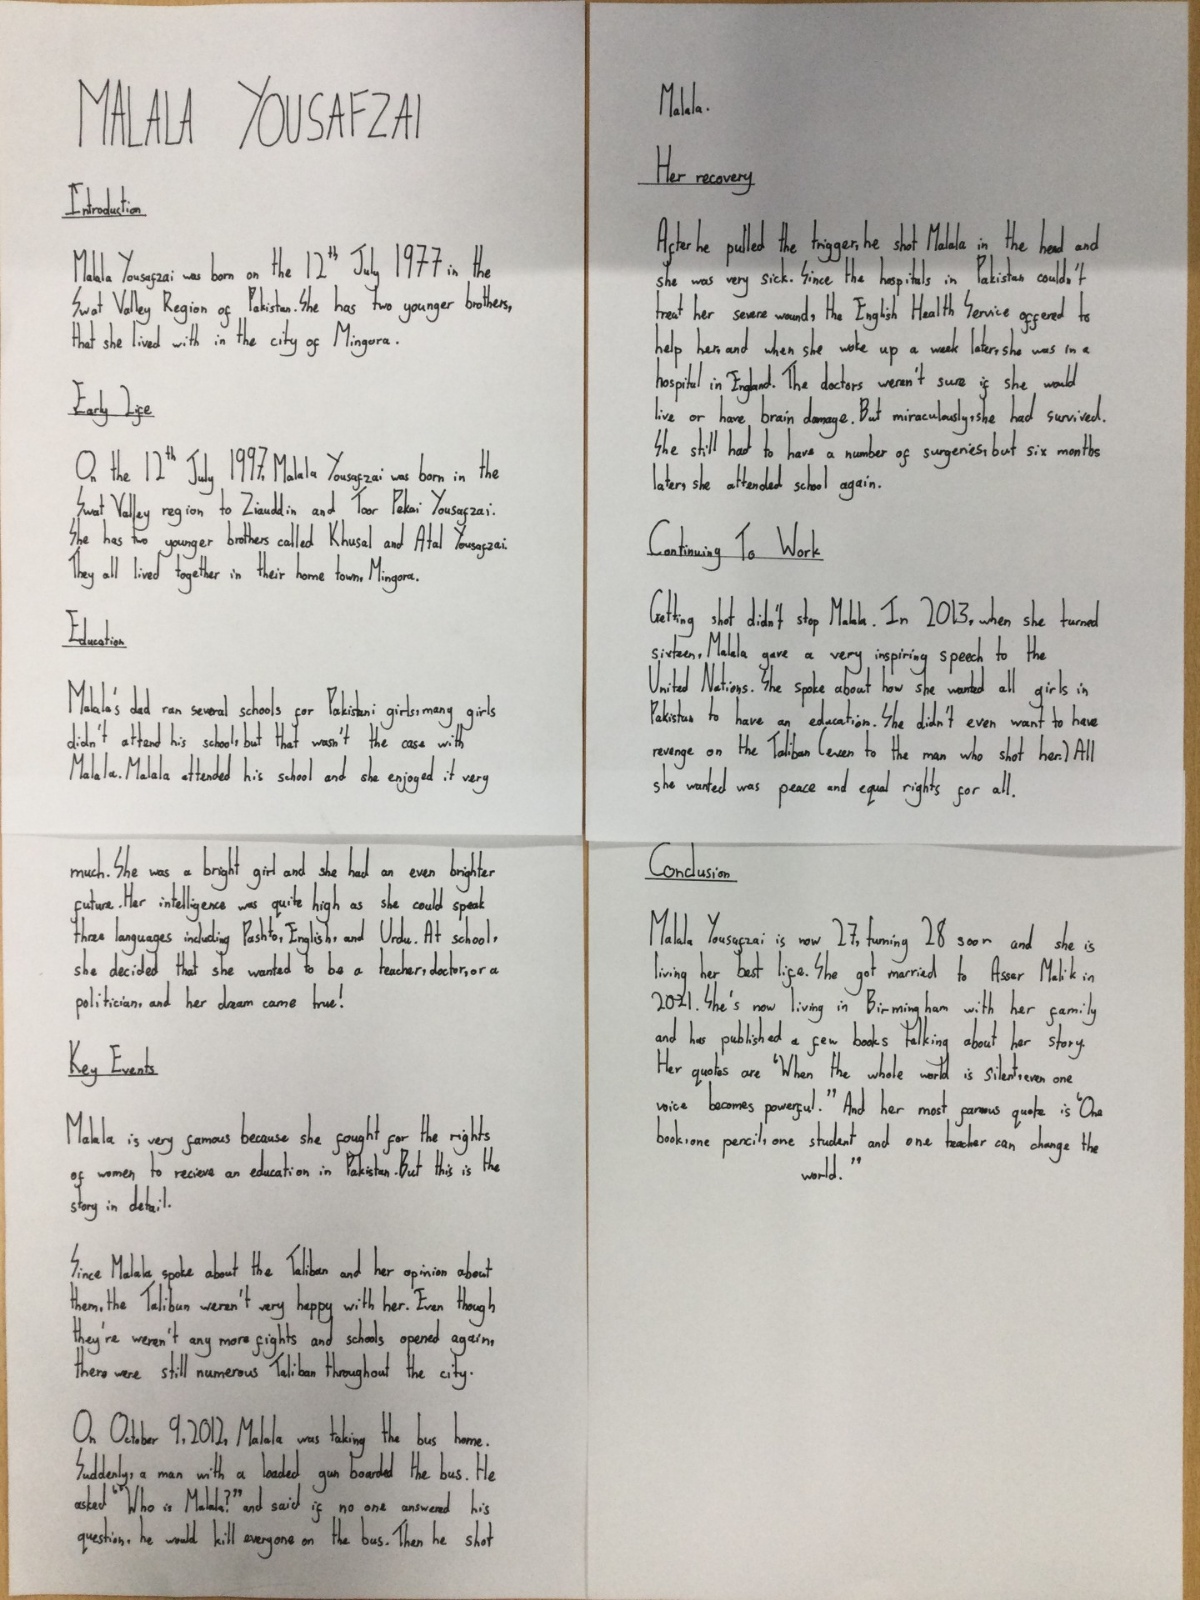 MALALA YOUSAFZAI
Introduction
Malala Yousafzai was born on the 12th July 1977 in the
Swat Valley Region of Pakistan. She has two younger brothers,
that she lived with in the city of Mingora.
Early Life
On the 12th July 1997, Malala Yousafzai was born in the
Swat Valley region to Ziauddin and Toor Pekai Yousafzai.
She has two younger brothers called Khusal and Atal Yousafzai.
They all lived together in their home town, Mingora.
Education
Malala's dad ran several schools for Pakistani girls, many girls
didn't attend his school, but that wasn't the case with
Malala. Malala attended his school and she enjoyed it very
much. She was a bright girl and she had an even brighter
future. Her intelligence was quite high as she could speak
three languages including Pashto, English, and Urdu. At school,
she decided that she wanted to be a teacher, doctor, or a
politician, and her dream came true!
Key Events
Malala is very famous because she fought for the rights
of women to recieve an education in Pakistan. But this is the
story in detail.
Since Malala spoke about the Taliban and her opinion about
them, the Taliban weren't very happy with her. Even though
they're weren't any more fights and schools opened again,
there were still numerous Taliban throughout the city.
On October 9, 2012, Malala was taking the bus home.
Suddenly, a man with a loaded gun boarded the bus. He
asked "Who is Malala?" and said if no one answered his
question, he would kill everyone on the bus. Then he shot
Malala.
Her recovery
After he pulled the trigger, he shot Malala in the head and
she was very sick. Since the hospitals in Pakistan couldn't
treat her severe wound, the English Health Service offered to
help her, and when she woke up a week later, she was in a
hospital in England. The doctors weren't sure if she would
live or have brain damage. But miraculously, she had survived.
She still had to have a number of surgeries, but six months
later, she attended school again.
Continuing To Work
Getting shot didn't stop Malala. In 2013, when she turned
sixteen, Malala gave a very inspiring speech to the
United Nations. She spoke about how she wanted all girls in
Pakistan to have an education. She didn't even want to have
revenge on the Taliban (even to the man who shot her.) All
she wanted was peace and equal rights for all.
Conclusion
Malala Yousafzai is now 27, turning 28 soon and she is
living her best life. She got married to Asser Malik in
2021. She's now living in Birmingham with her family
and has published a few books talking about her story.
Her quotes are "When the whole world is silent, even one
voice becomes powerful." And her most famous quote is "One
book, one pencil, one student and one teacher can change the
world."